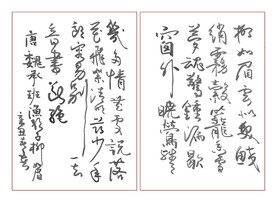 柳如眉云似发鲛
绡雾縠笼香雪
梦魂惊钟漏歇
窗外晓莺残月
几多情无处说落
花飞絮清明节少年
郎容易别一去
音书断绝
唐魏承班渔歌子柳如眉